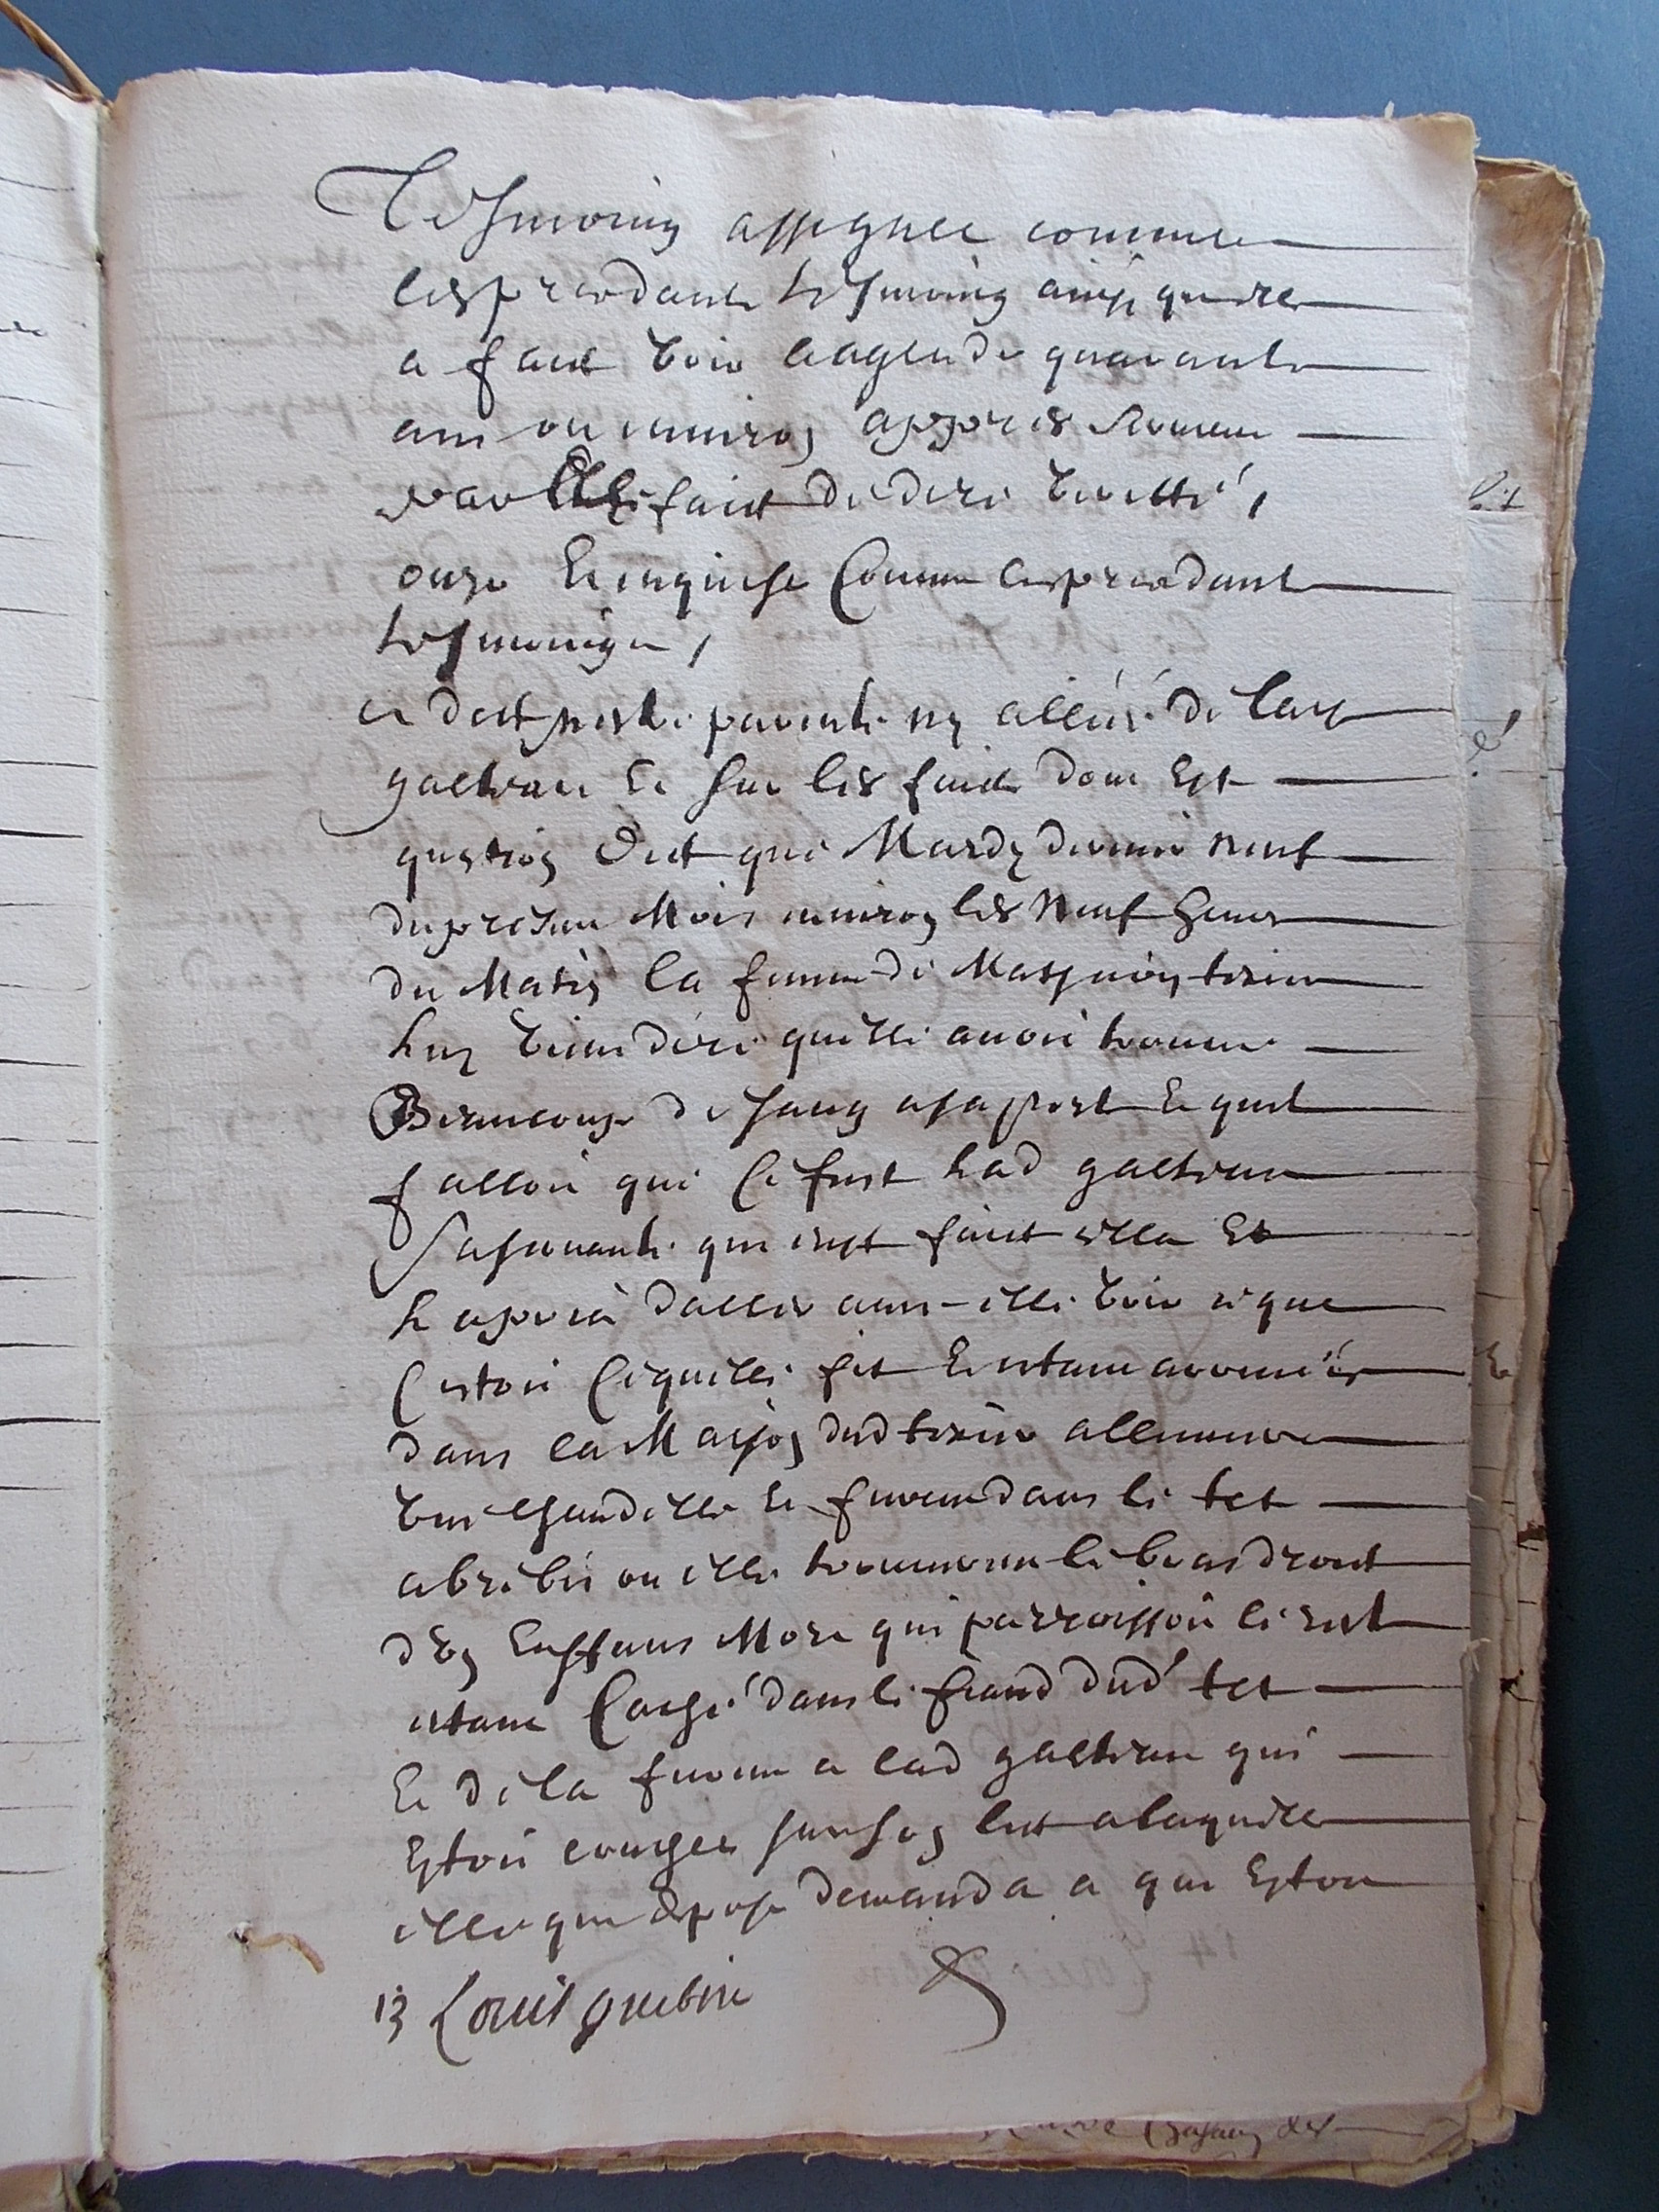 Tesmoing assignee comme
les precedante tesmoing ainsi quelle
a faict voir aagee de quarante
ans ou environ appres serment
par elle faict de dire veritté,
ouye Et enquise Comme les precedant
tesmoings,
a dict nestre parente ny alliée de lad
galtrau Et sur les faicts dont Est
question Dict que Mardy dernier neuf
du present Mois environ les Neuf heures
du Matin la femme de
luy vient dire quelle avoit trouvé
Beaucoup de sang a sa porte Et quil
falloit que Ce fust lad galtrau
Sa servante qui eust faict cella Et
la pria daller avec elle voir ce que
Cestoit Ce quelle fit Et estant arrivées
dans la Maison dud allumerent
une chandelle Et furent dans le tet
a brebis ou elle trouverent le bras droict
dun Enffant Mort qui parroissoit le reste
estant Caché dans le fiand dud tet
Et de la furent a lad galtrau qui
Estoit couchee sur son lict a laquelle
elle qui depose demanda a qui Estoit
13 Louis